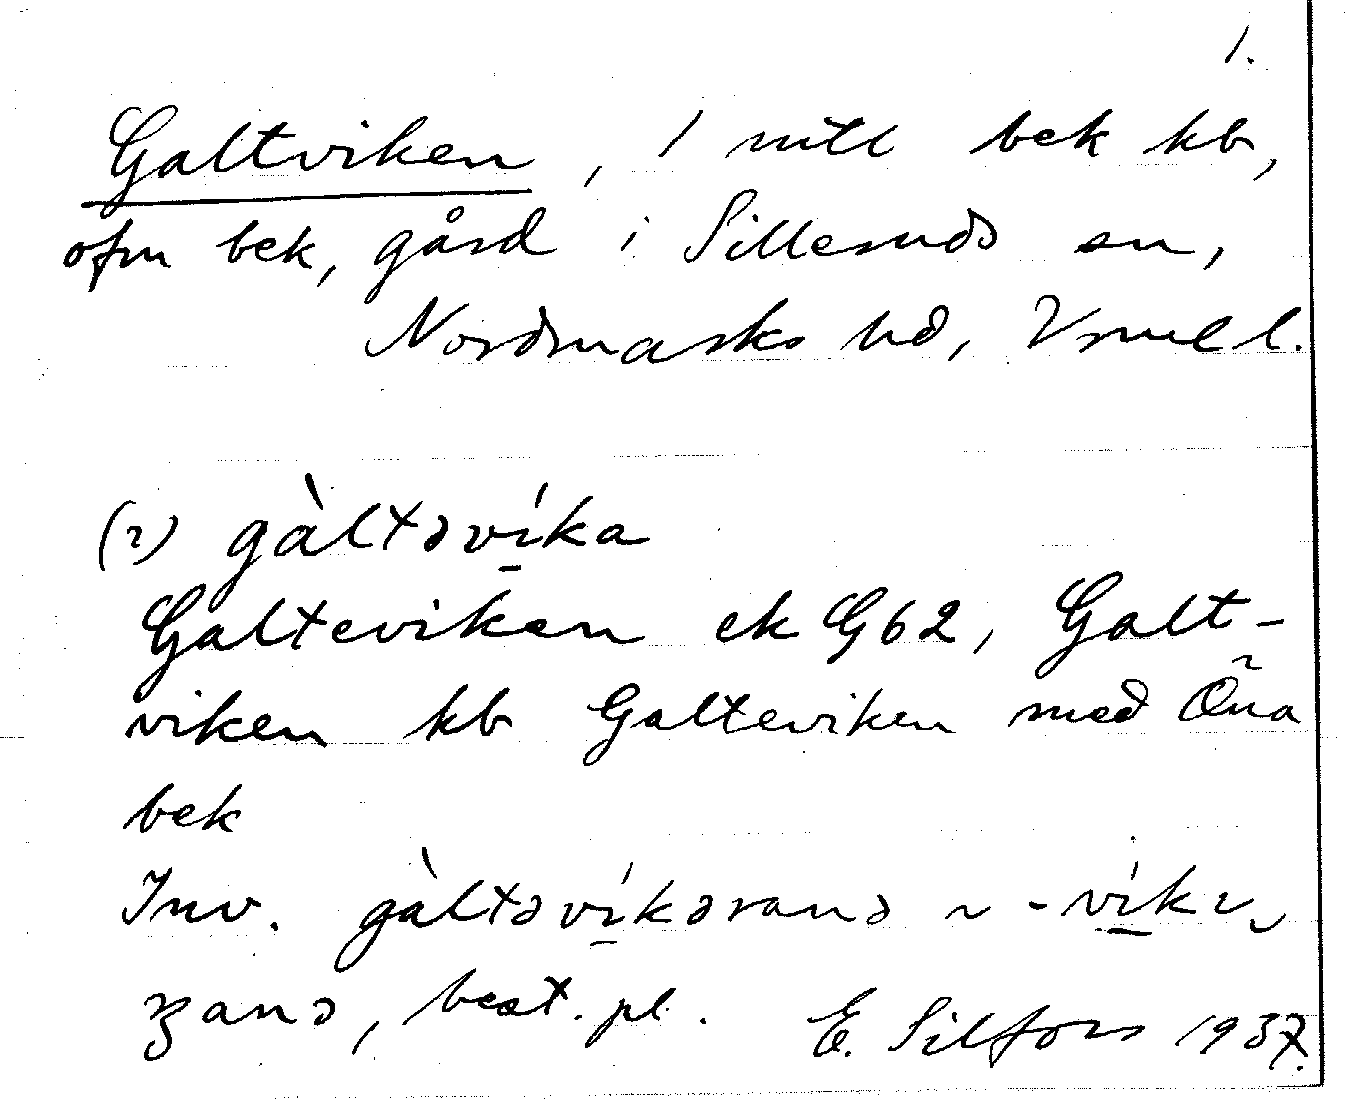 1.
Galtviken, 1 mtl bek kb,
ofm bek, gård i Silleruds sn,
Nordmarks hd, Vrml l.
(2) gàltəvíka
Galteviken ek G62, Galt-
viken kb Galteviken med Öna
bek
Inv. gàltəvíkəranə ~ -vík
anə, best. pl. E. Silfors 1937.